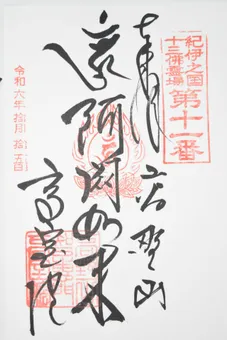 紀伊之国
十三佛霊場
第十一番
奉拝
高野山
阿閦如来
高室院
令和六年 拾月 拾五日